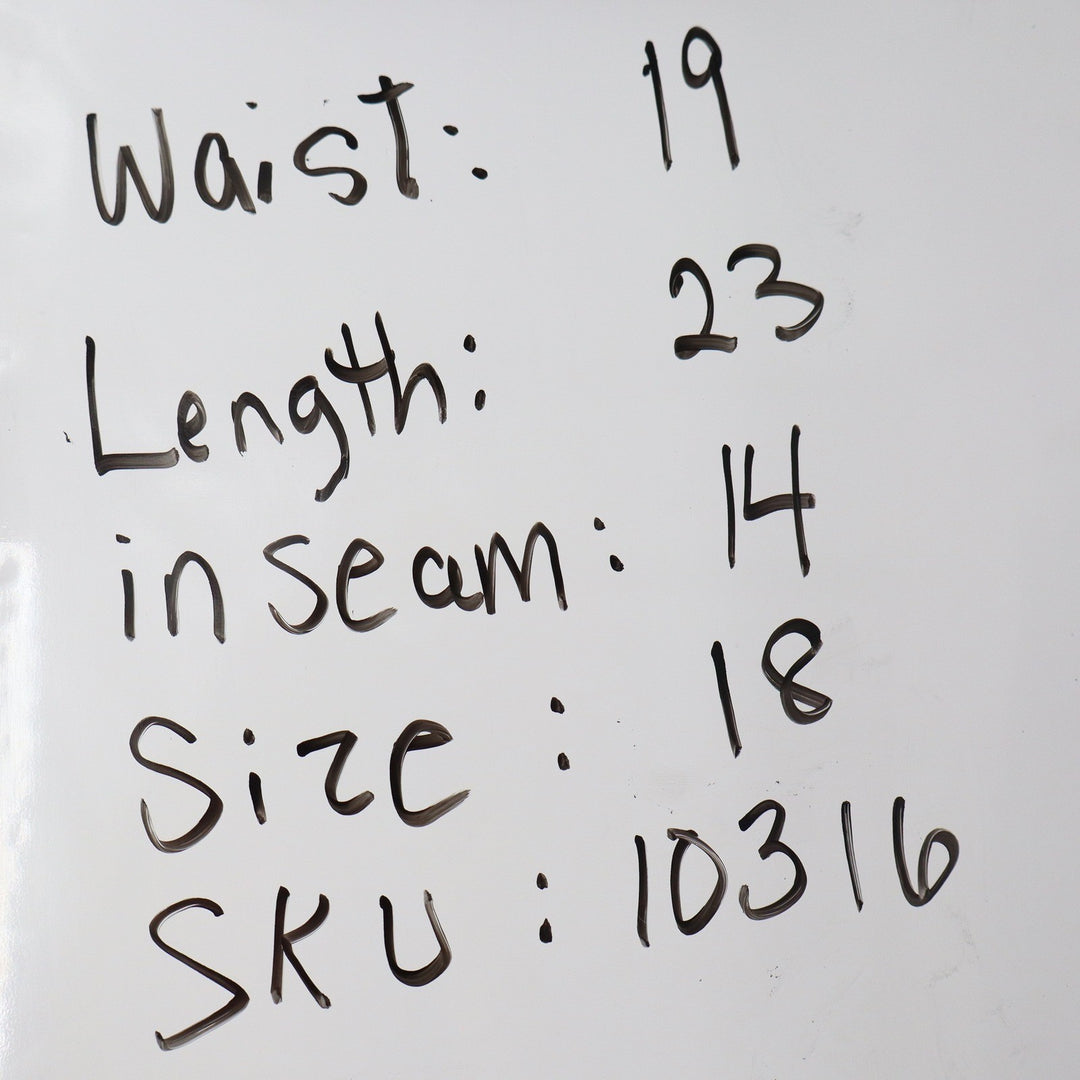 Waist: 19
Length: 23
inseam: 14
Size: 18
SKU: 10316